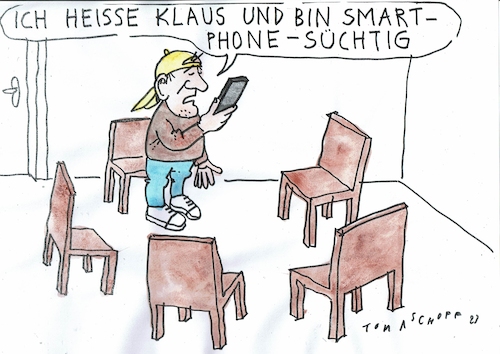 ICH HEISSE KLAUS UND BIN SMART-
PHONE-SÜCHTIG
TOMASCHOFF 23